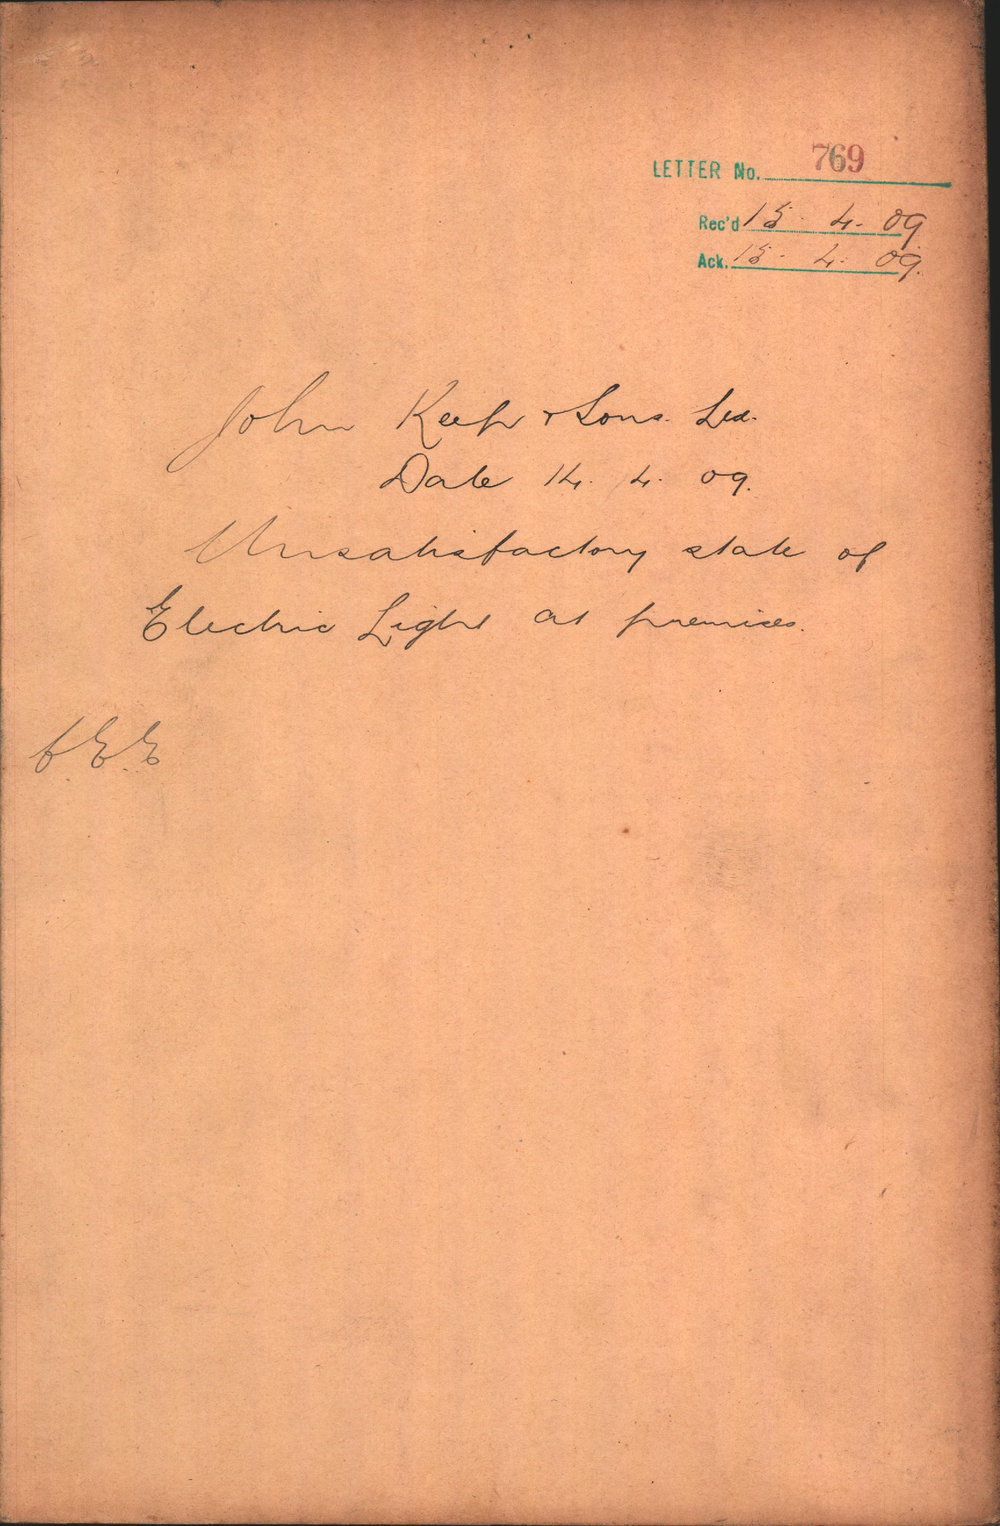 LETTER No. 769
Rec'd 15. 4. 09
Ack. 15. 4. 09.
John Keep & Sons. Ltd.
Date 14. 4. 09.
Unsatisfactory state of
Electric Light at premises.